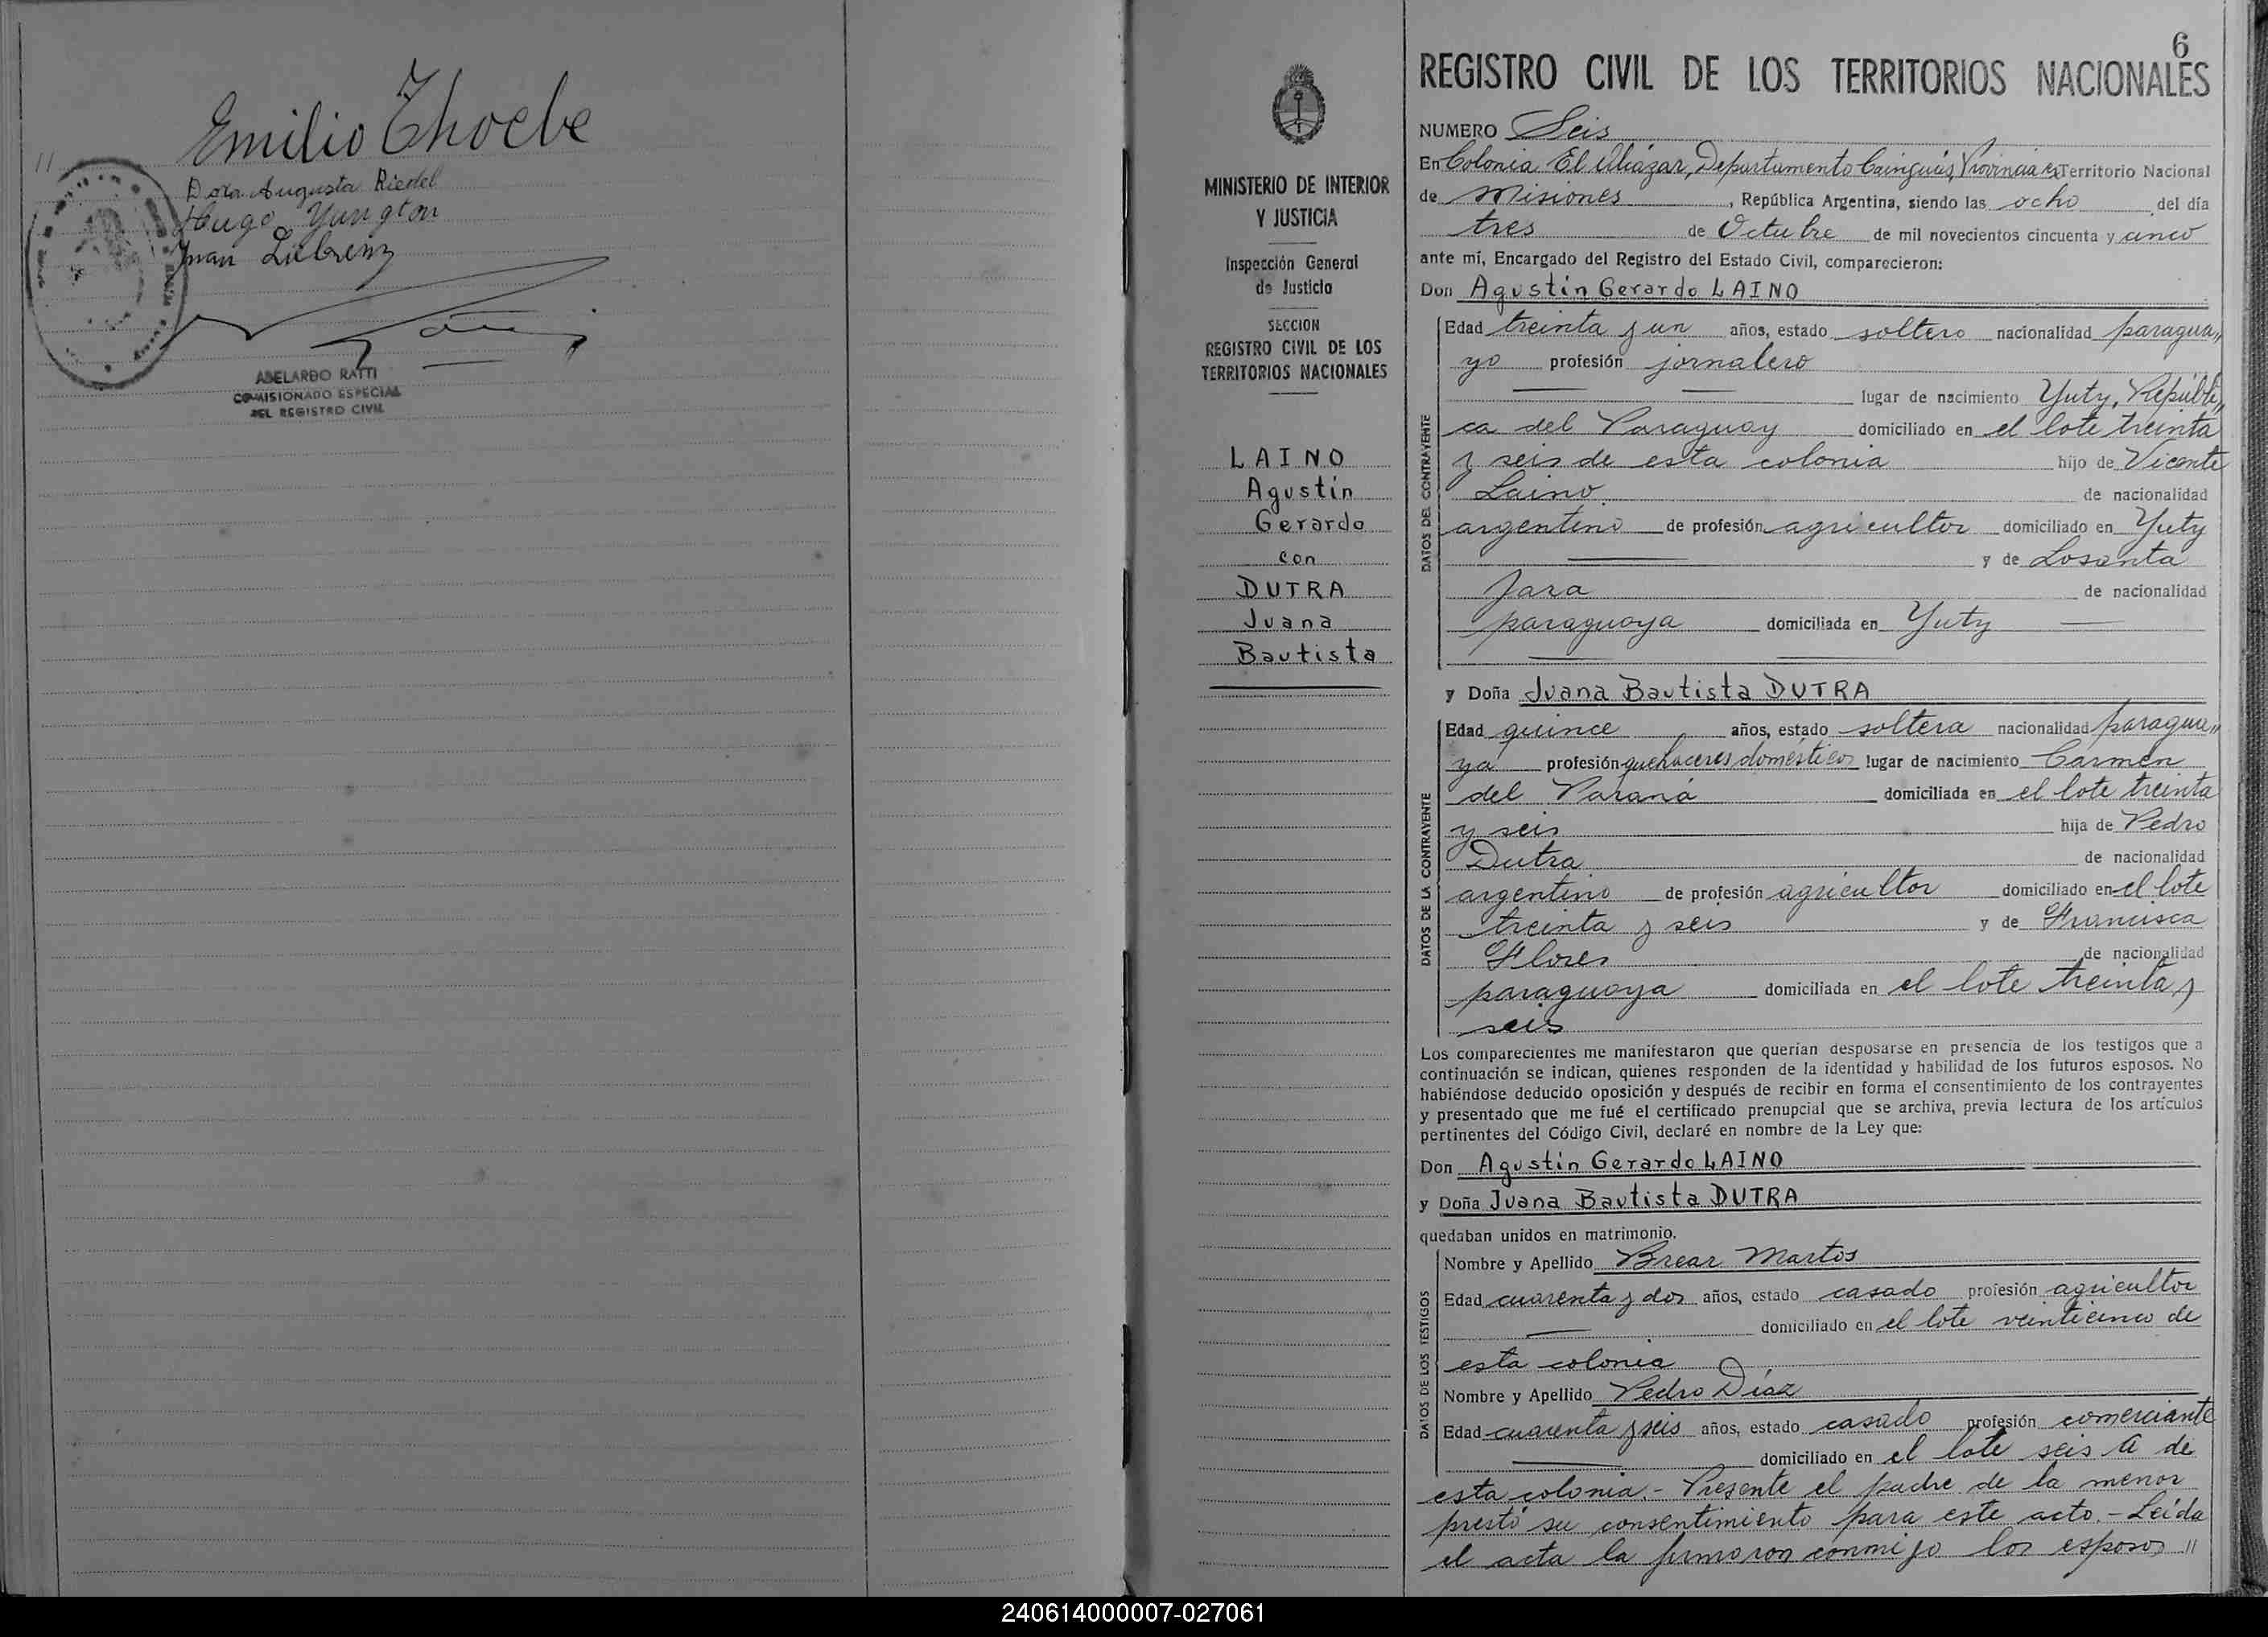 Emilio Thoebe
Dora Augusta Riedel
Hugo Yungton
ABELARDO RATTI
COMISIONADO ESPECIAL
DEL REGISTRO CIVIL
MINISTERIO DE INTERIOR
Y JUSTICIA
Inspección General
de Justicia
SECCION
REGISTRO CIVIL DE LOS
TERRITORIOS NACIONALES
LAINO
Agustín
Gerardo
con
DUTRA
Juana
Bautista
6
REGISTRO CIVIL DE LOS TERRITORIOS NACIONALES
NUMERO Seis
En Colonia El Alcázar, Departamento Cainguás, Provincia ex Territorio Nacional
de Misiones, República Argentina, siendo las ocho del día
tres de Octubre de mil novecientos cincuenta y cinco
ante mí, Encargado del Registro del Estado Civil, comparecieron:
Don Agustín Gerardo LAINO
DATOS DEL CONTRAYENTE
Edad treinta y un años, estado soltero nacionalidad paragua„
yo profesión jornalero
lugar de nacimiento Yuty, Repúbli„
ca del Paraguay domiciliado en el lote treinta
y seis de esta colonia hijo de Vicente
Laino de nacionalidad
argentino de profesión agricultor domiciliado en Yuty
y de Losanta
Jara de nacionalidad
paraguaya domiciliada en Yuty
y Doña Juana Bautista DUTRA
DATOS DE LA CONTRAYENTE
Edad quince años, estado soltera nacionalidad paragua„
ya profesión quehaceres domésticos lugar de nacimiento Carmen
del Paraná domiciliada en el lote treinta
y seis hija de Pedro
Dutra de nacionalidad
argentino de profesión agricultor domiciliado en el lote
treinta y seis y de Francisca
Flores de nacionalidad
paraguaya domiciliada en el lote treinta y
seis
Los comparecientes me manifestaron que querían desposarse en presencia de los testigos que a
continuación se indican, quienes responden de la identidad y habilidad de los futuros esposos. No
habiéndose deducido oposición y después de recibir en forma el consentimiento de los contrayentes
y presentado que me fué el certificado prenupcial que se archiva, previa lectura de los artículos
pertinentes del Código Civil, declaré en nombre de la Ley que:
Don Agustín Gerardo LAINO
y Doña Juana Bautista DUTRA
quedaban unidos en matrimonio.
DATOS DE LOS TESTIGOS
Nombre y Apellido Brear Martos
Edad cuarenta y dos años, estado casado profesión agricultor
domiciliado en el lote veinticinco de
esta colonia
Nombre y Apellido Pedro Díaz
Edad cuarenta y seis años, estado casado profesión comerciante
domiciliado en el lote seis A de
esta colonia.- Presente el padre de la menor
prestó su consentimiento para este acto.- Leída
el acta la firmaron conmigo los esposos "
240614000007-027061